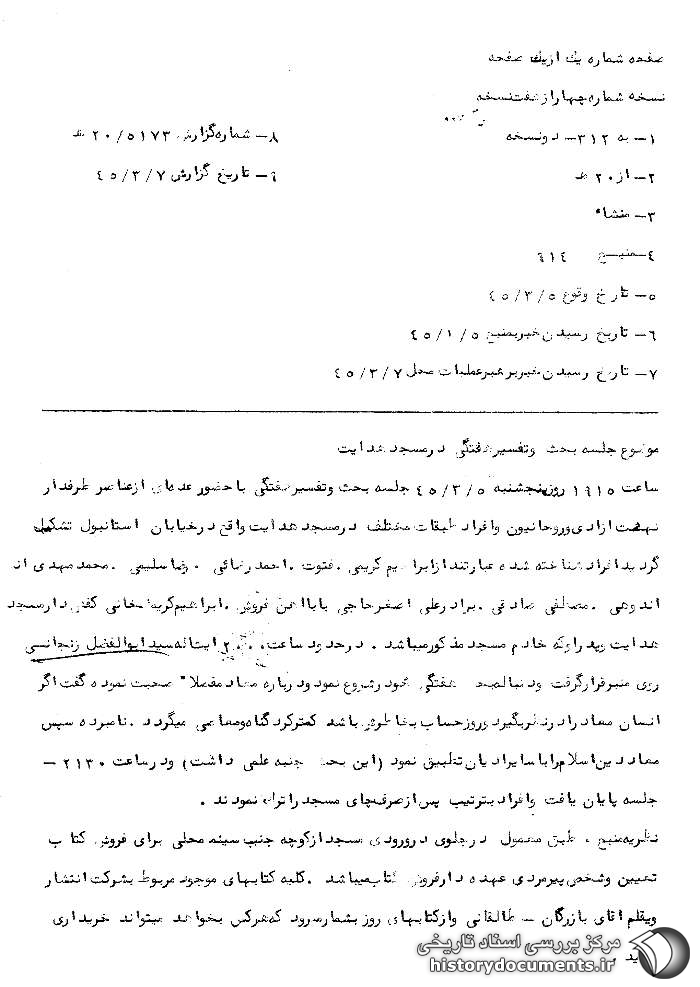 صفحه شماره یك از یك صفحه
نسخه شماره چهار از هفت نسخه
۱ـ به ۳۱۲ـ دو نسخه
۲ـ از ۲۰ هـ
۳ـ منشاء
٤ـ منبع ٦١٤
۵ـ تاریخ وقوع ٤٥/٣/٥
٦ـ تاریخ رسیدن خبر بمنبع ٤٥/١/٥
۷ـ تاریخ رسیدن خبر برهبر عملیات محل ٤٥/٣/٧
۸ـ شماره گزارش ٢٠/٥١٧٣ هـ
٩ـ تاریخ گزارش ٤٥/٣/٧
موضوع جلسه بحث وتفسیر هفتگی در مسجد هدایت
ساعت ١٩١٥ روز پنجشنبه ٤٥/٣/٥ جلسه بحث وتفسیر هفتگی با حضور عده‌ای از عناصر طرفدار
نهضت ازادی وروحانیون وافراد طبقات مختلف در مسجد هدایت واقع در خیابان استانبول تشکیل
گردید افراد شناخته شده عبارتند از ابراهیم کریمی . فتوت . احمد رضائی . رضا سلیمی . محمد مهدی اند
اندوهی . مصطفی صادقی . برادر علی اصغر حاجی بابا اهن فروش . ابراهیم کریمخانی کفش دار مسجد
هدایت وپدر اوکه خادم مسجد مذکور میباشد . در حدود ساعت ایت اله سید ابوالفضل زنجانی
روی منبر قرار گرفت ودنباله بحث هفتگی خود را شروع نمود ودرباره معاد مفصلا" صحبت نموده گفت اگر
انسان معاد را در نظر بگیرد وروز حساب بخاطرش باشد کمتر گرد گناه ومعاصی میگردد . نامبرده سپس
معاد دین اسلام را با سایر ادیان تطبیق نمود (این بحث جنبه علمی داشت) ودر ساعت ٢١٣٠ ـ
جلسه پایان یافت وافراد بترتیب پس از صرف چای مسجد را ترك نمودند .
نظریه منبع ، طبق معمول در جلوی در ورودی مسجد از کوچه جنب سینما محلی برای فروش کتاب
تعیین وشخص پیرمردی عهده دار فروش کتاب میباشد . کلیه کتابهای موجود مربوط بشرکت انتشار
وبقلم اقای بازرگان ـ طالقانی واز کتابهای روز بشمار میرود که هرکس بخواهد میتواند خریداری
مرکز بررسی اسناد تاریخی
historydocuments.ir